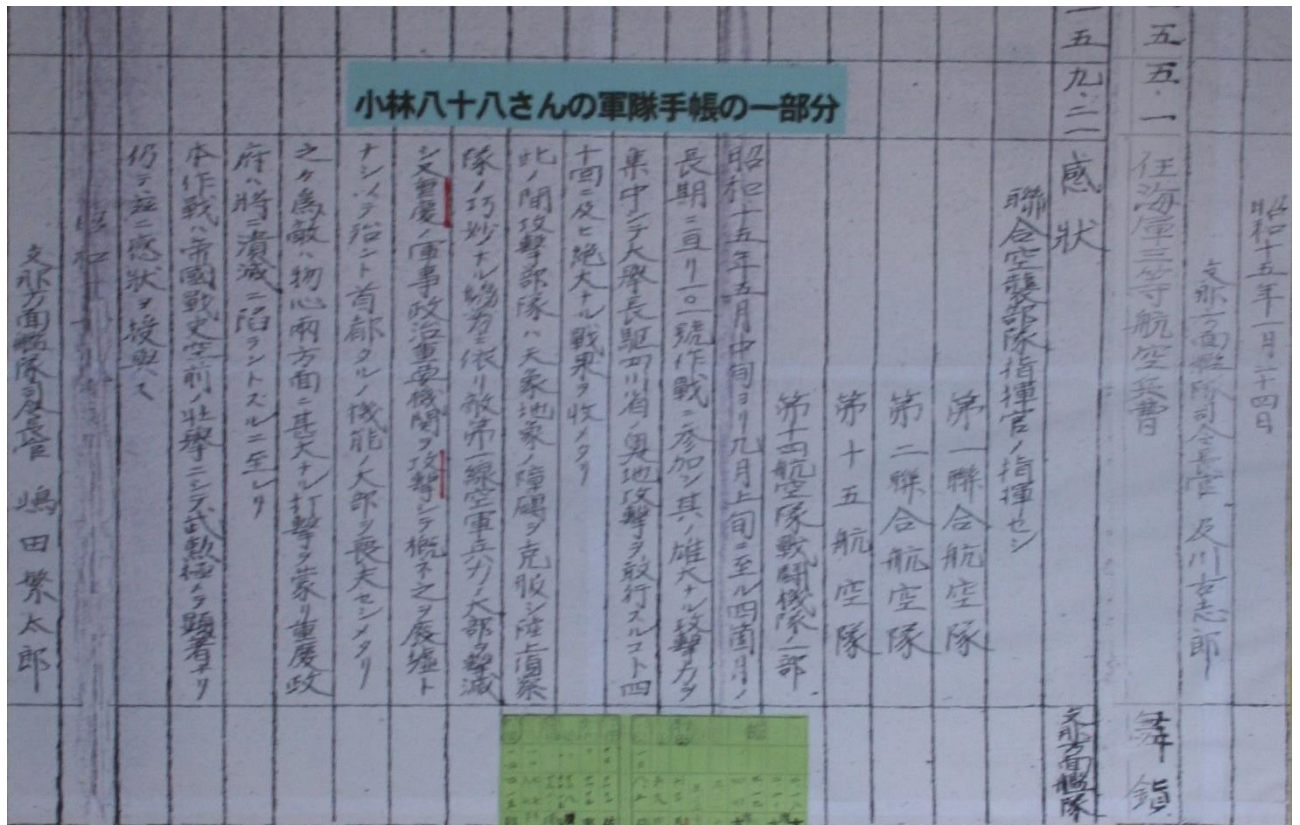 小林八十八さんの軍隊手帳の一部分
昭和十五年一月二十四日
支那方面艦隊司令長官 及川古志郎
一五 五・一 任海軍三等航空兵曹 舞鎮
一五 九・二一 感狀 支那方面艦隊
聯合空襲部隊指揮官ノ指揮セシ
第一聯合航空隊
第二聯合航空隊
第十五航空隊
第十四航空隊戰鬪機隊ノ一部
昭和十五年五月中旬ヨリ九月上旬ニ至ル四箇月ノ
長期ニ亘リ一〇一號作戰ニ參加シ其ノ雄大ナル攻擊力ヲ
集中シテ大擧長駆四川省ノ奧地攻擊ヲ敢行スルコト四
十回ニ及ヒ絶大ナル戰果ヲ收メタリ
此ノ間攻擊部隊ハ天象地象ノ障礙ヲ克服シ陸上偵察
隊ノ巧妙ナル協力ニ依リ敵第一線空軍兵力ノ大部ヲ擊滅
シ又重慶ノ軍事政治重要機関ヲ攻擊シテ概ネ之ヲ廢墟ト
ナシ以テ殆ント首都タルノ機能ノ大部ヲ喪失セシメタリ
之カ爲敵ハ物心兩方面ニ甚大ナル打擊ヲ蒙リ重慶政
府ハ將ニ潰滅ニ陷ラントスルニ至レリ
本作戰ハ帝國戰史空前ノ壯擧ニシテ武勲極メテ顕著ナリ
仍テ茲ニ感狀ヲ授與ス
昭和
支那方面艦隊司令長官 嶋田繁太郎